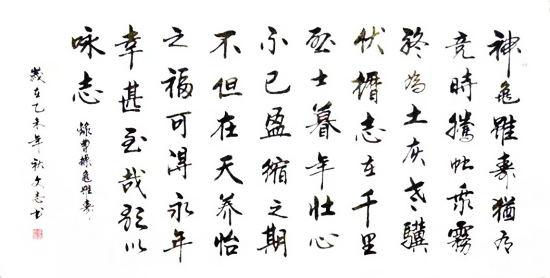 神龜雖寿猶有
竞時騰虵乘霧
終為土灰老驥
伏櫪志在千里
烈士暮年壮心
不已盈縮之期
不但在天养怡
之福可得永年
幸甚至哉歌以
咏志
錄曹操龜雖寿
歲在乙未年秋文志书